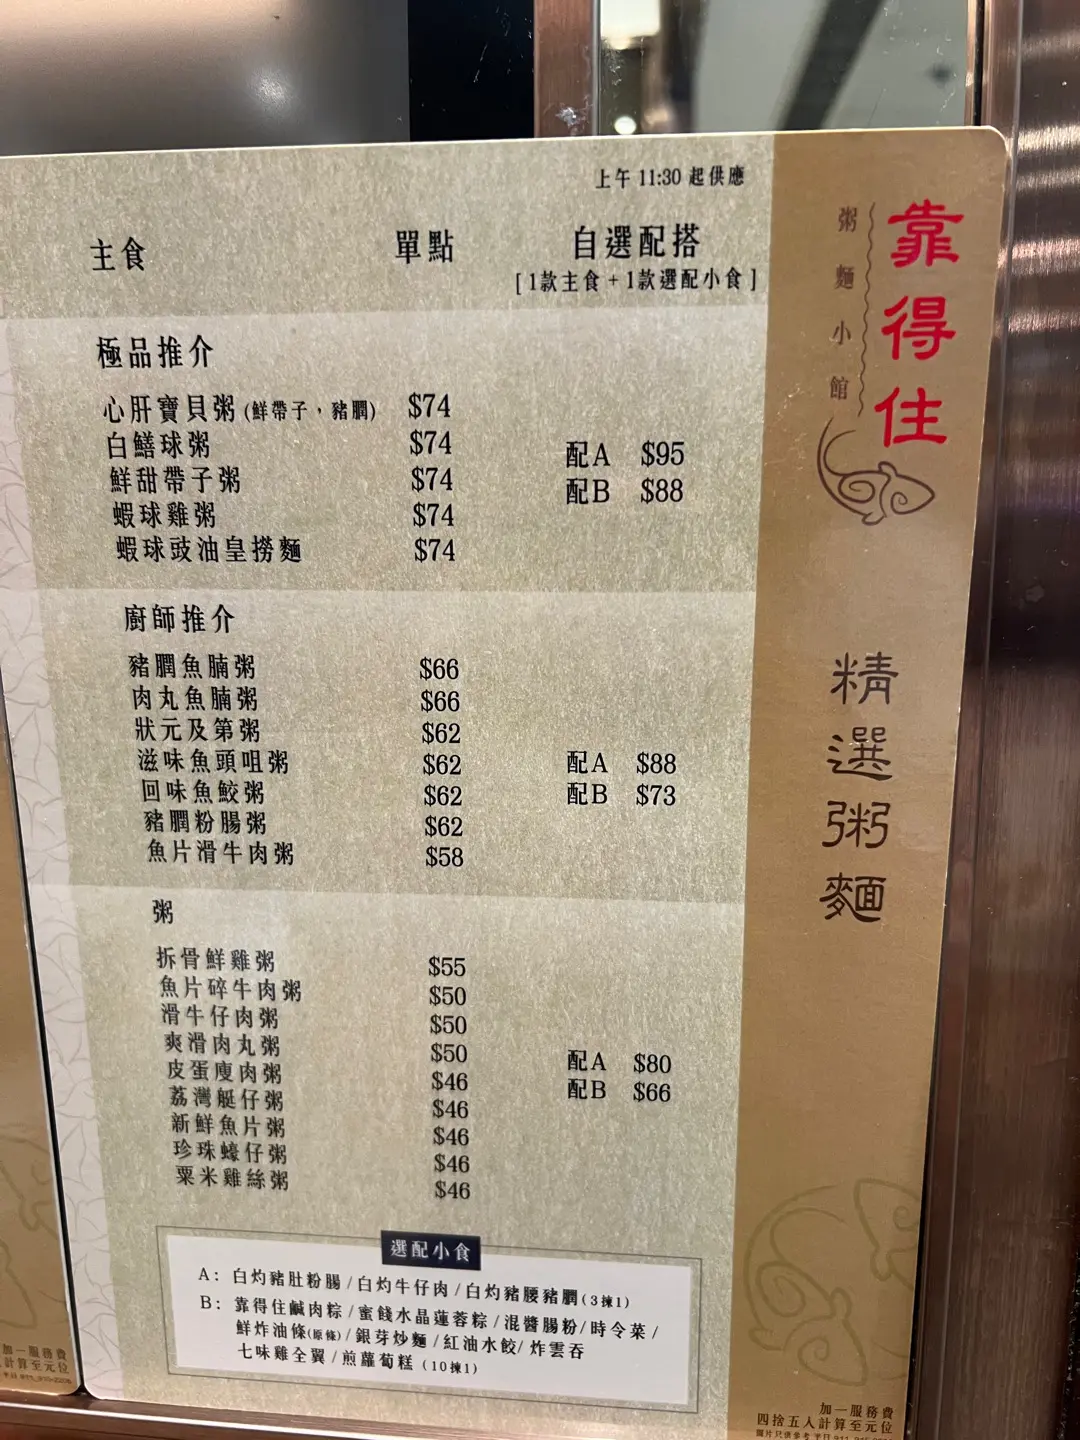 上午 11:30 起供應
主食 單點 自選配搭
[ 1款主食 + 1款選配小食 ]
極品推介
心肝寶貝粥 (鮮帶子，豬膶) $74
白鱔球粥 $74
鮮甜帶子粥 $74
蝦球雞粥 $74
蝦球豉油皇撈麵 $74
配A $95
配B $88
廚師推介
豬膶魚腩粥 $66
肉丸魚腩粥 $66
狀元及第粥 $62
滋味魚頭咀粥 $62
回味魚鮫粥 $62
豬膶粉腸粥 $62
魚片滑牛肉粥 $58
配A $88
配B $73
粥
拆骨鮮雞粥 $55
魚片碎牛肉粥 $50
滑牛仔肉粥 $50
爽滑肉丸粥 $50
皮蛋廋肉粥 $46
荔灣艇仔粥 $46
新鮮魚片粥 $46
珍珠蠔仔粥 $46
粟米雞絲粥 $46
配A $80
配B $66
選配小食
A: 白灼豬肚粉腸 / 白灼牛仔肉 / 白灼豬腰豬膶 (3揀1)
B: 靠得住鹹肉粽 / 蜜餞水晶蓮蓉粽 / 混醬腸粉 / 時令菜 /
鮮炸油條(原條) / 銀芽炒麵 / 紅油水餃 / 炸雲吞
七味雞全翼 / 煎蘿蔔糕 (10揀1)
靠得住
粥麵小館
精選粥麵
加一服務費
四捨五入計算至元位
加一服務費
計算至元位